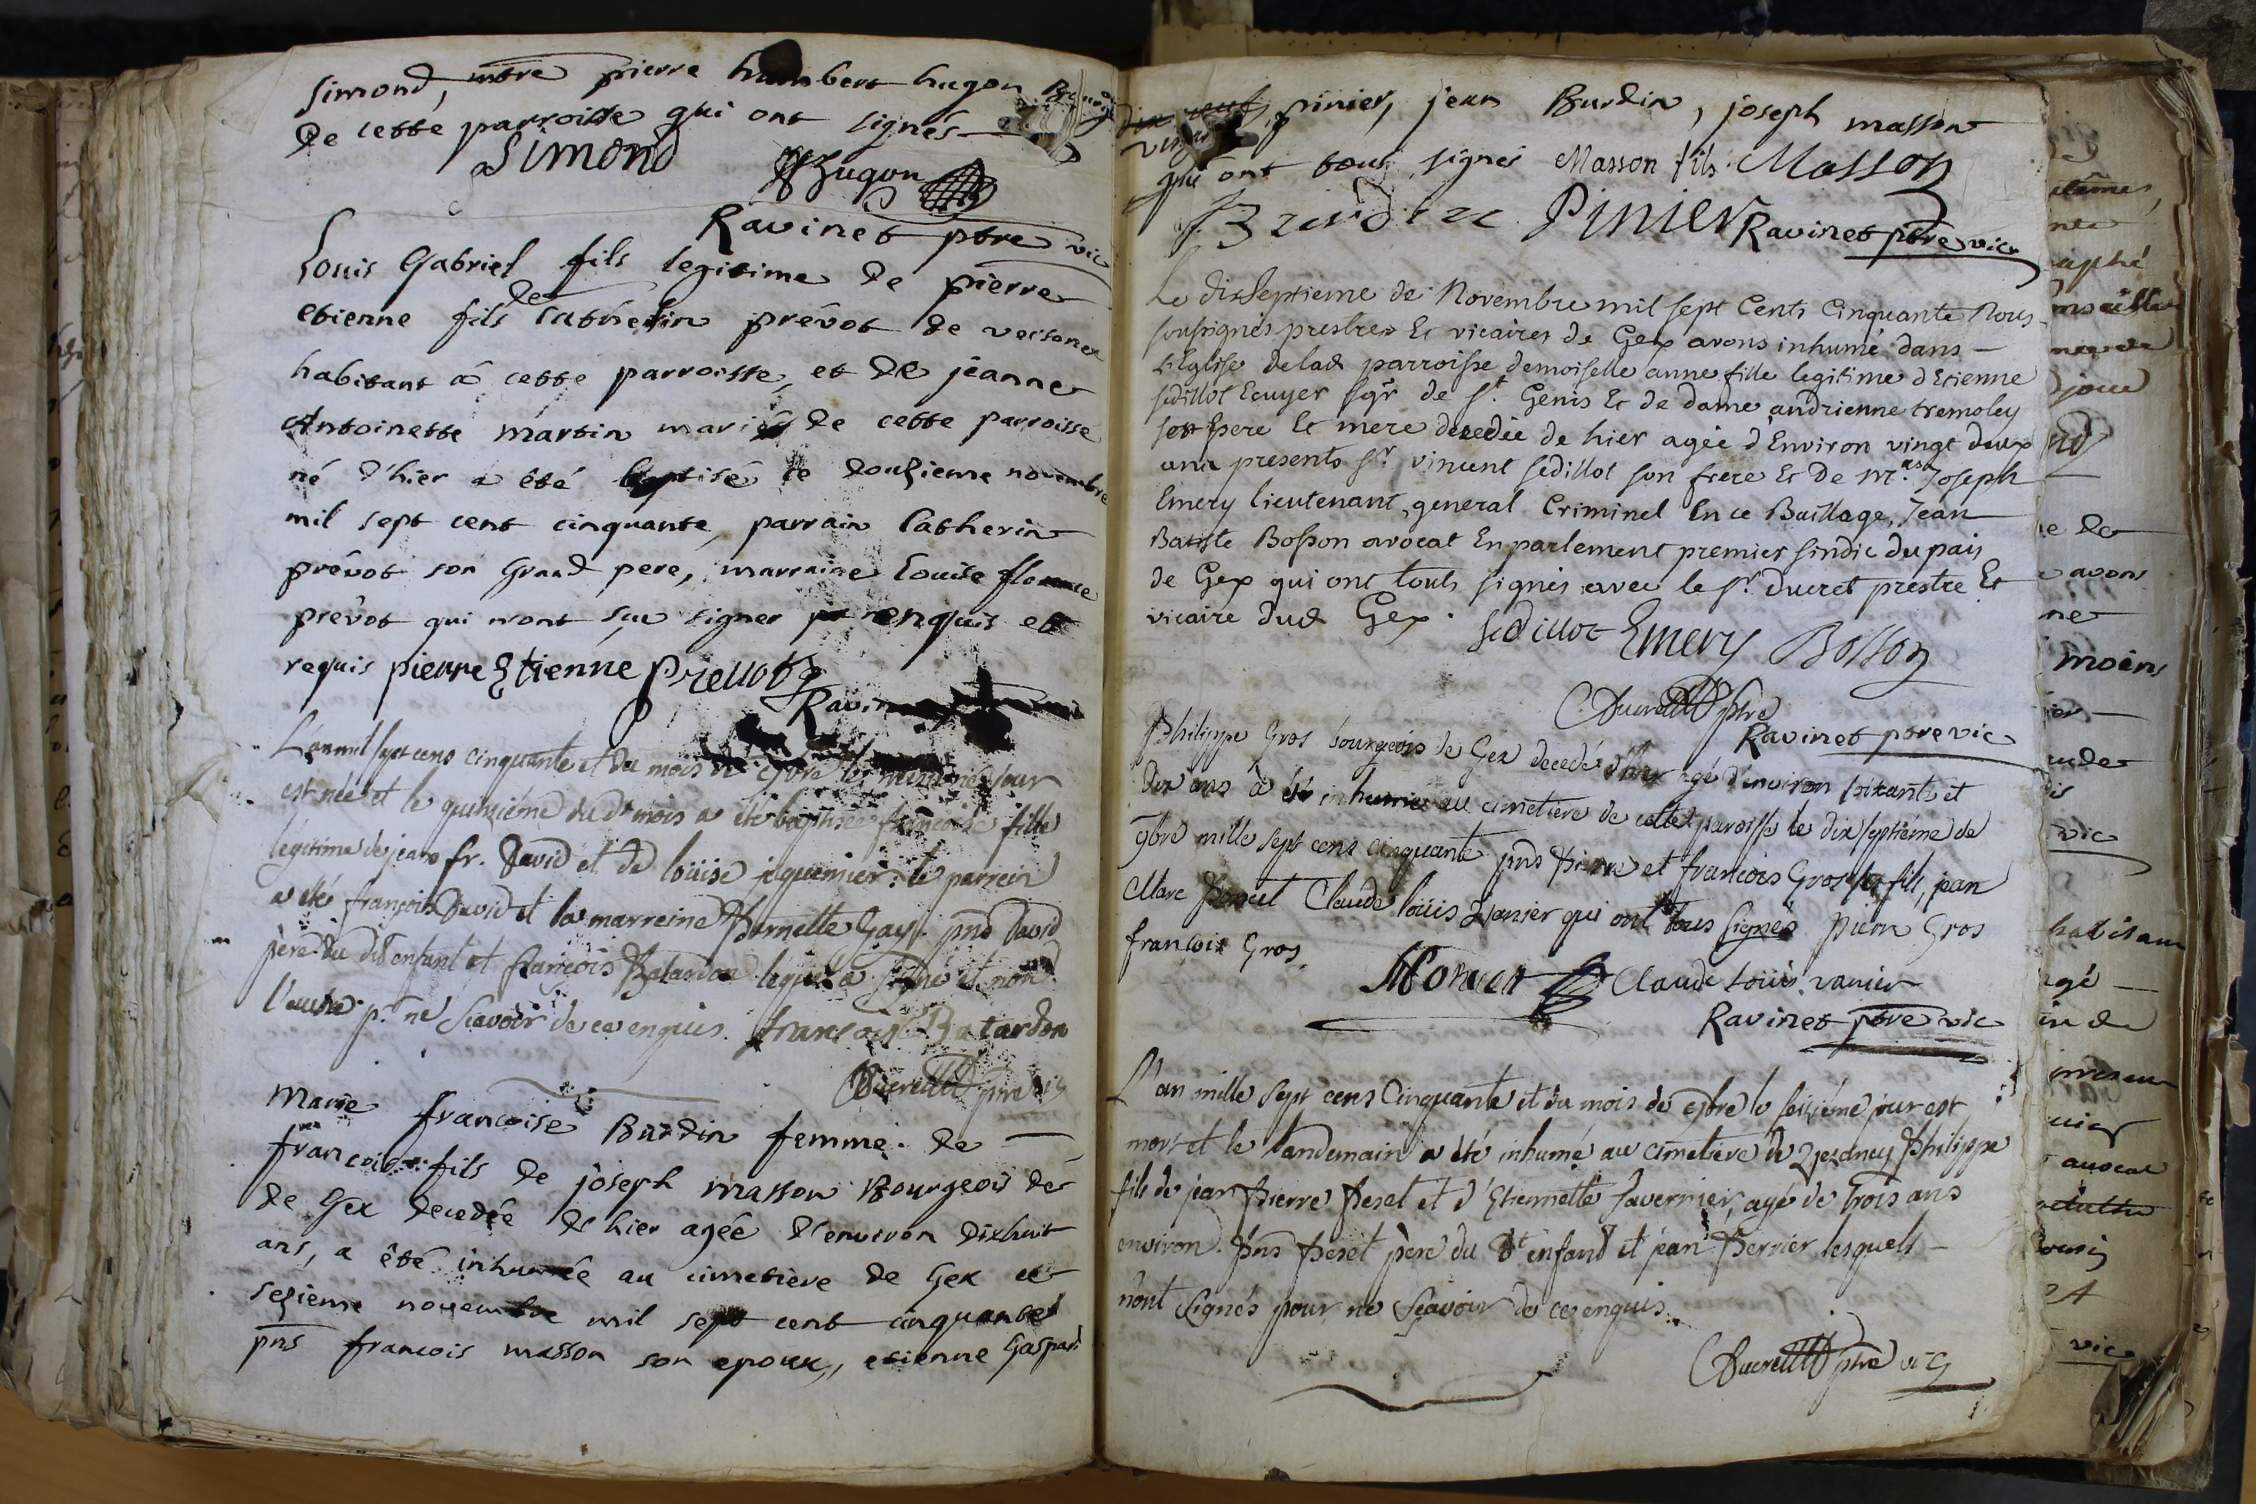 simond, mtre pierre humbert hugon Bourgeois
de cette parroisse qui ont signés
Simond hugon
Ravinet ptre vic
Louis Gabriel fils legitime de pierre
etienne fils de Catherin prévot de vesonex
habitant à cette parroisse, et de jeanne
Antoinette martin mariés de cette parroisse
né d'hier a été baptisé ce douzieme novembre
mil sept cent cinquante, parrain Catherin
prévot son Grand pere, marraine Louise florence
prévot qui n'ont sçu signer enquis et
requis pierre Etienne Prevot
Ravinet
L'an mil sept cens cinquante et du mois de jour
est née et le quinziéme du dt mois a été baptisée françoise fille
légitime de jean fr. David et de loüise jaquemier: le parrein
a été françois David et la marreine Pernette Gay. pns David
père du dit enfant et françois Batardon lequel a signé et non
l'autre pr. ne sçavoir de ce enquis. francois Batardon
Ducrett ptre vic
Marie francoise Burdin femme de
francois fils de joseph masson Bourgeois de
de Gex decedée de hier agée d'environ dixhuit
ans, a été inhumée au cimetière de Gex ce
sezieme novembre mil sept cent cinquante
pns francois masson son epoux, etienne Gaspard
pinier, jean Burdin, joseph masson
qui ont tous signés Masson fils. Masson
J Burdin Pinier Ravinet ptre vic
Le dixseptieme de Novembre mil sept Cents Cinquante Nous
soussignés prestres Et vicaires de Gex avons inhumé dans
L'Eglise de lad parroisse demoiselle anne fille legitime d'Etienne
sedillot Ecuyer sgr de st. Genis Et de dame andrienne tremoley
son pere Et mere decedée de hier agée d'Environ vingt deux
ans presents sr. vincent sedillot son frere Et de Mrs. Joseph
Emery lieutenant general Criminel En ce Baillage, Jean
Batiste Bosson avocat En parlement premier sindic du païs
de Gex qui ont touts signés avec le sr. Ducret prestre Et
vicaire dud Gex. sedillot Emery Bosson
Ducrett ptre
Ravinet ptre vic
Philippe Gros bourgeois de Gex decedé d'hier agé d'environ soixante et
dix ans a été inhumé au cimetière de cette paroisse le dix septième de
9bre mille sept cens cinquante pns Pierre et francois Gros ses fils, jean
Marc Claude loüis Vanier qui ont tous signés Pierre Gros
françoix Gros
Claude Loüis vanier
Ravinet ptre vic
L'an mille sept cens Cinquante et du mois de 9bre le seiziéme jour est
mort et le landemain a été inhumé au cimetiere de Philippe
fils de jean Pierre Peset et d'Etiennette Tavernier, agé de trois ans
environ. pns Peset père du dt enfant et jean Perrier lesquels
n'ont signés pour ne sçavoir de ce enquis.
Ducrett ptre vic